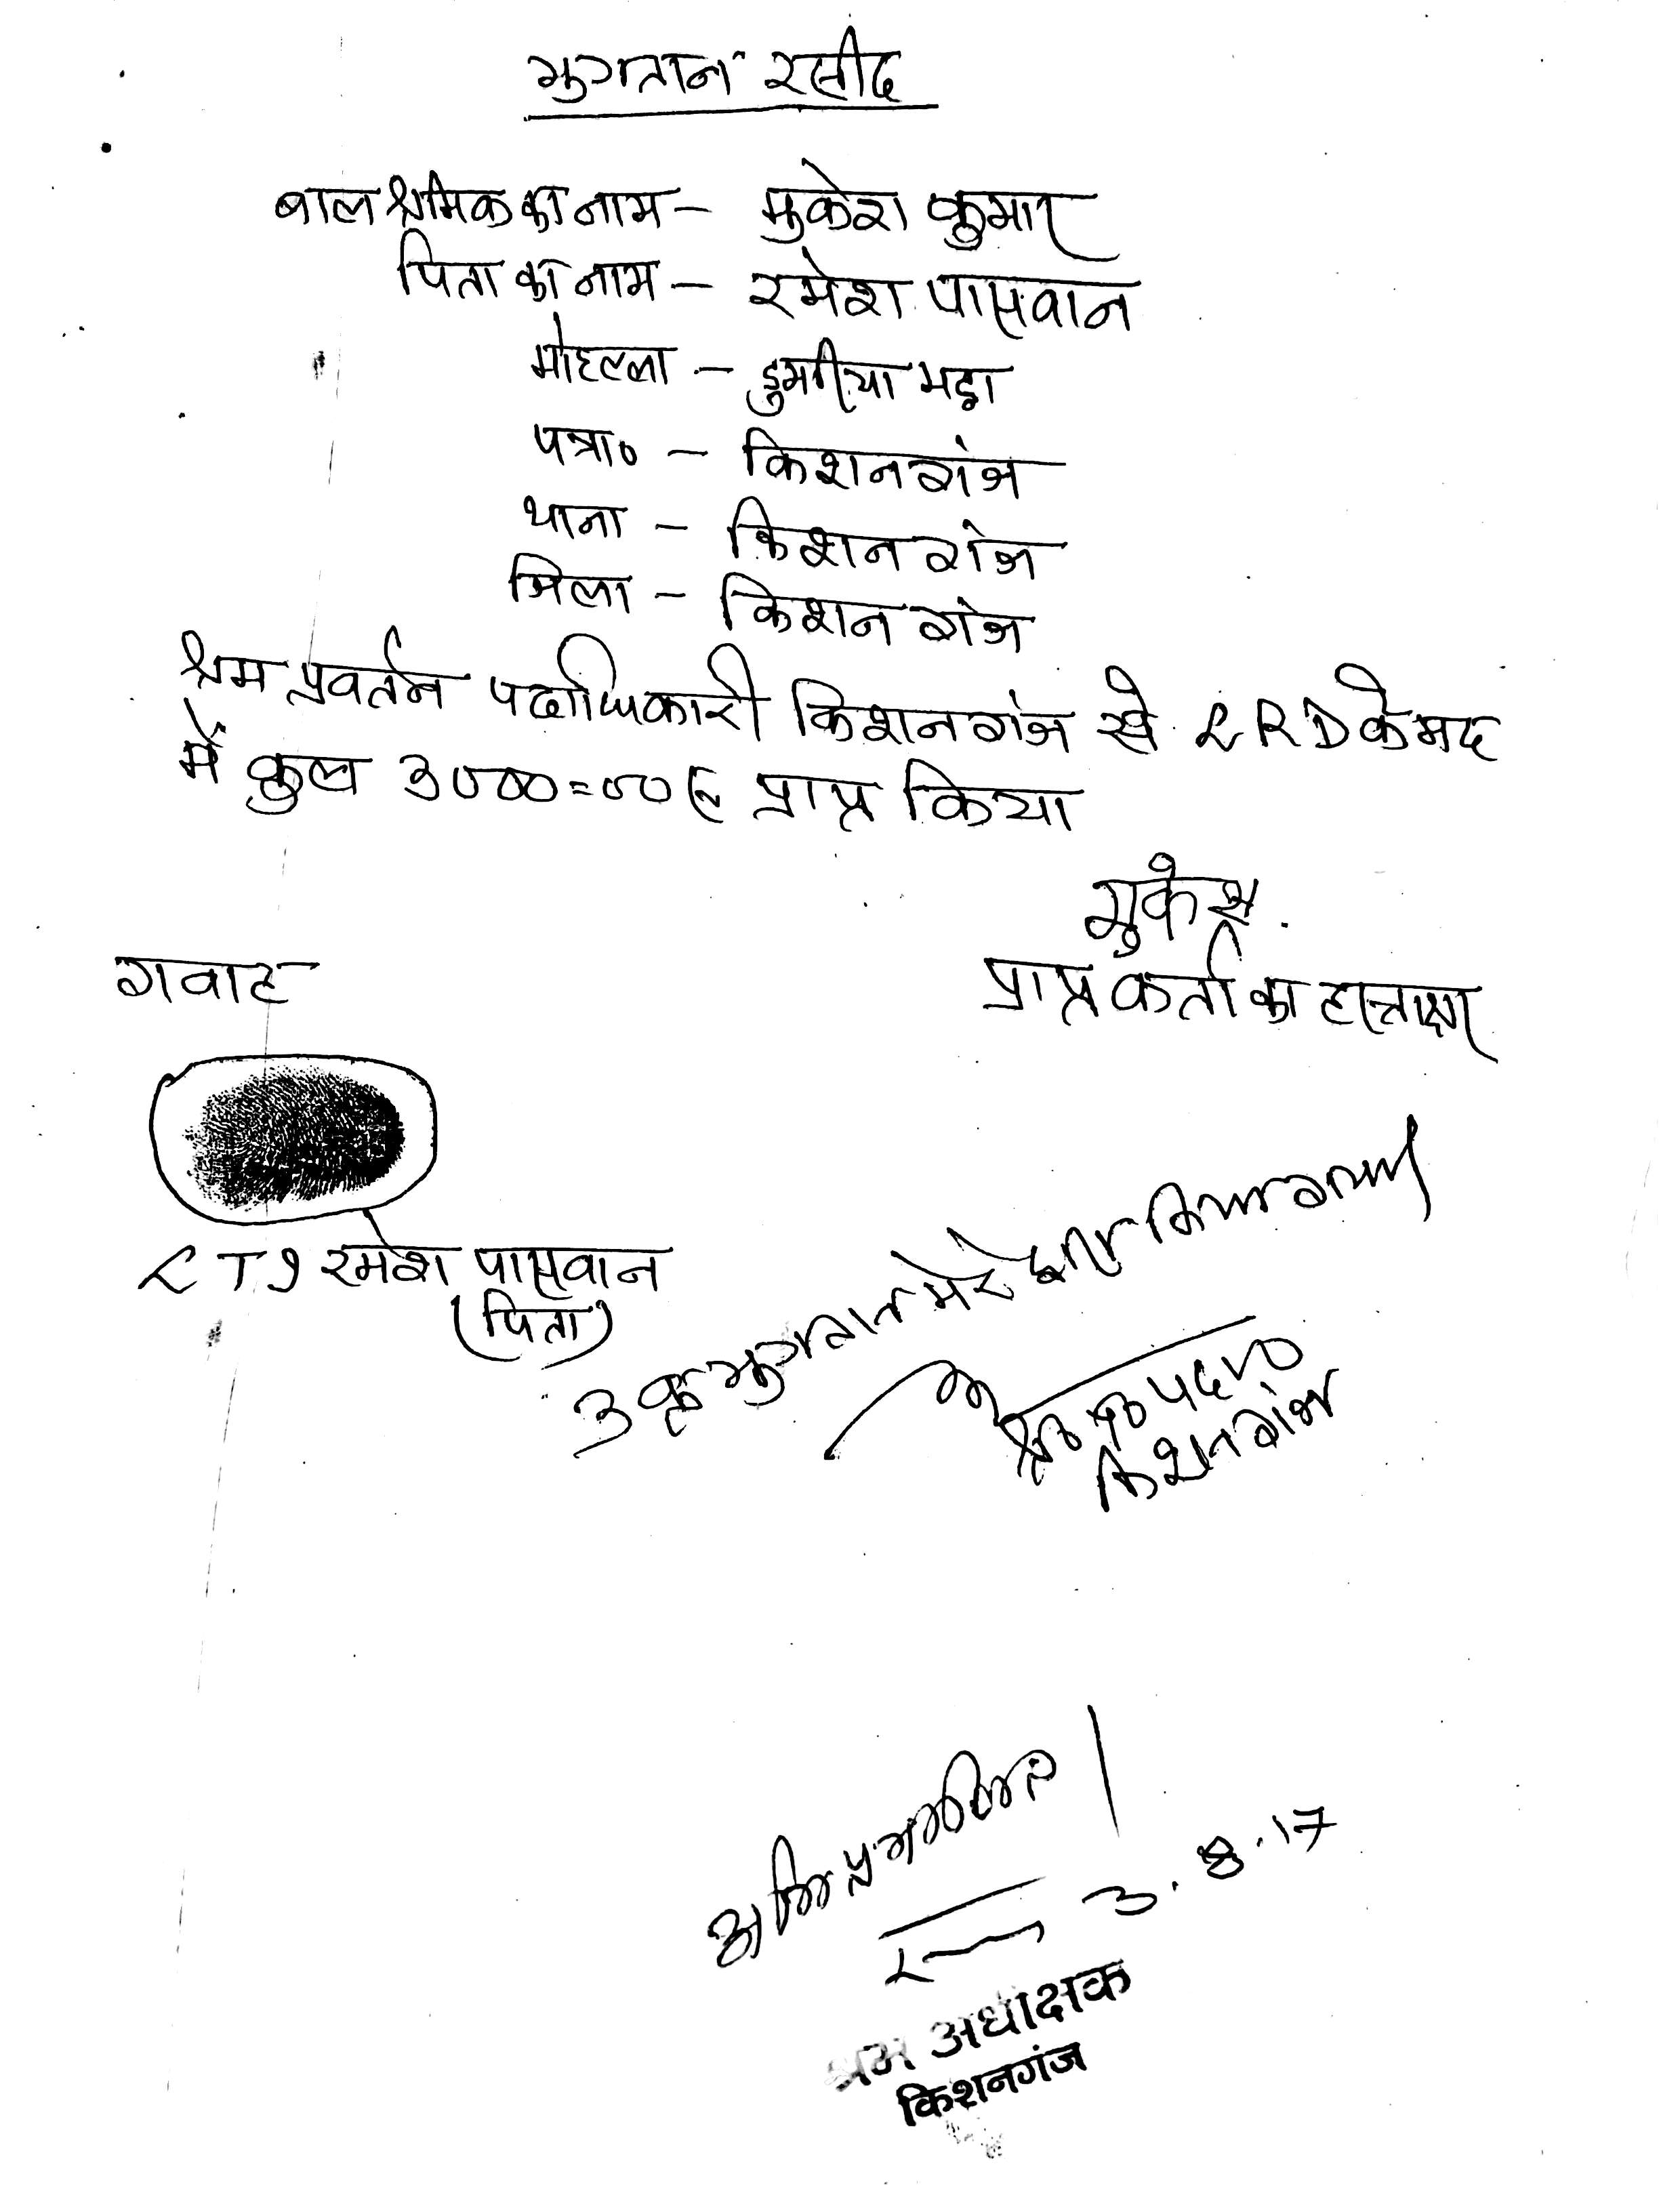 भुगतान रसीद
बाल श्रमिक का नाम – मुकेश कुमार
पिता का नाम – रमेश पासवान
मोहल्ला – डुमरीया भट्ठा
पत्रा० – किशनगंज
थाना – किशनगंज
जिला – किशनगंज
श्रम प्रवर्तन पदाधिकारी किशनगंज से LRD के मद
में कुल 3000=00 रु प्राप्त किया
मुकेश
गवाह
प्राप्त कर्ता का हस्ताक्षर
LTI रमेश पासवान
(पिता)
उक्त भुगतान मेरे द्वारा किया गया।
श्र० प्र० पदा०
किशनगंज
अभिप्रमाणित
3.8.17
श्रम अधीक्षक
किशनगंज